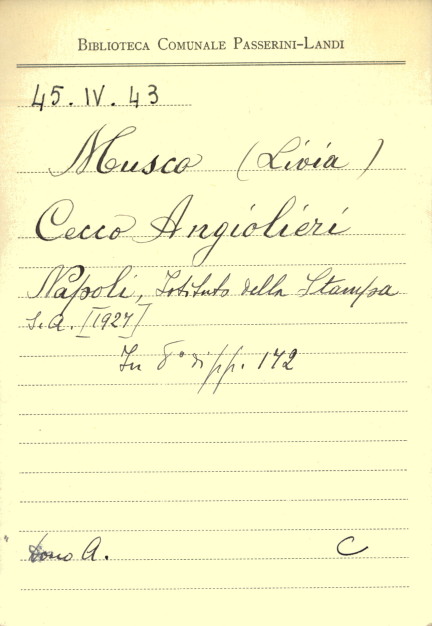 BIBLIOTECA COMUNALE PASSERINI-LANDI
45. IV. 43
Musco (Livia)
Cecco Angiolieri
Napoli, Istituto della Stampa
S. a. [1927]
In 8° di pp. 172
Dono A. C